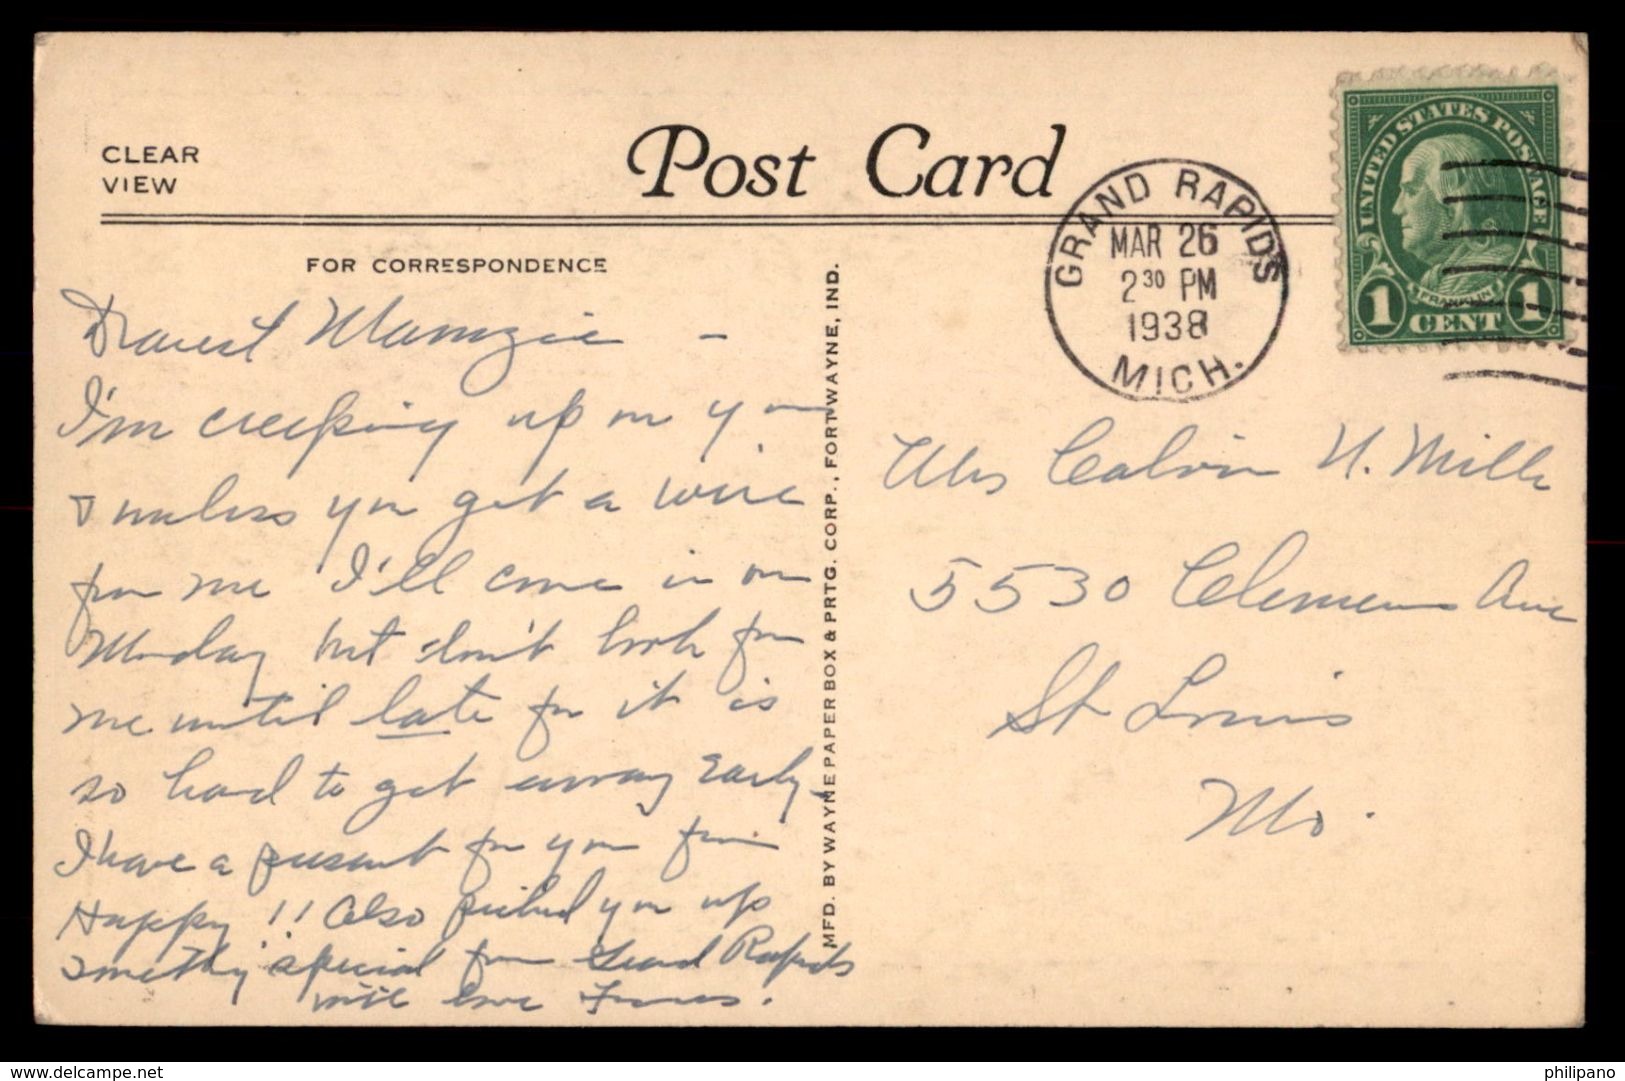 CLEAR
VIEW
Post Card
FOR CORRESPONDENCE
GRAND RAPIDS
MAR 26
2 30 PM
1938
MICH.
UNITED STATES POSTAGE
FRANKLIN
1 CENT 1
Dearest Mamzie –
I'm creeping up on you
& unless you get a wire
from me I'll come in on
Monday but don't look for
me until late for it is
so hard to get away early –
I have a present for you from
Happy!! Also picked you up
something special from Grand Rapids
with love
MFD. BY WAYNE PAPER BOX & PRTG. CORP., FORT WAYNE, IND.
Mrs Calvin N. Mills
5530 Clemens Ave
St Louis
Mo.
www.delcampe.net
philipano